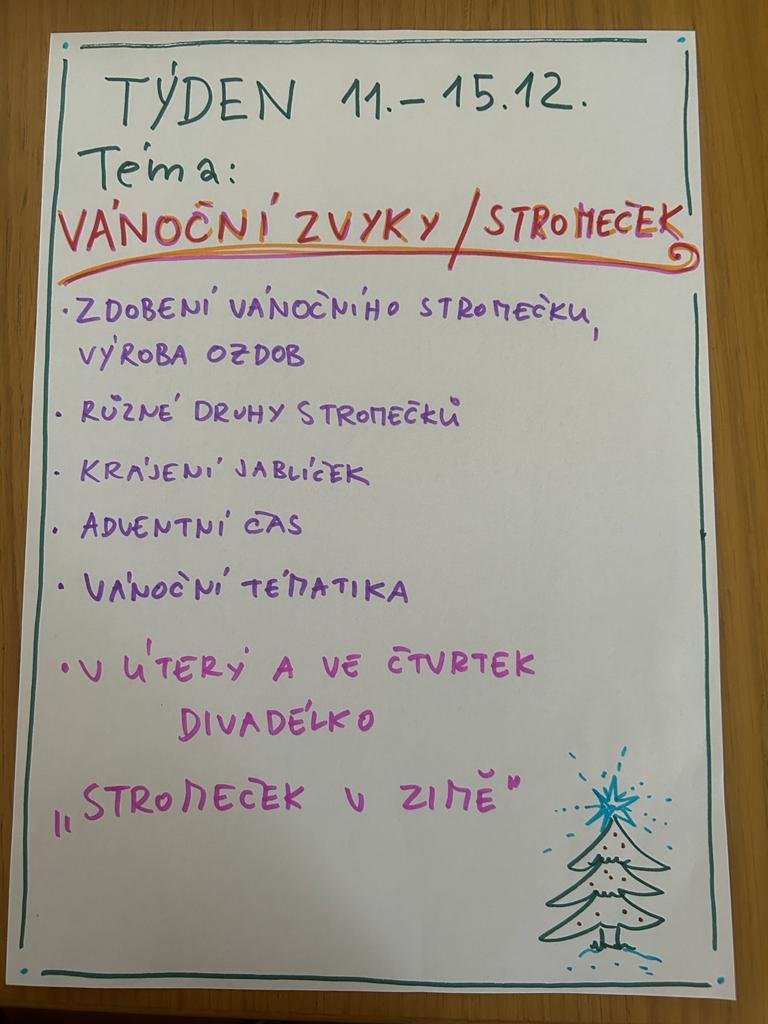 TÝDEN 11.-15.12.
Téma:
VÁNOČNÍ ZVYKY/STROMEČEK
• ZDOBENÍ VÁNOČNÍHO STROMEČKU,
VÝROBA OZDOB
• RŮZNÉ DRUHY STROMEČKŮ
• KRÁJENÍ JABLÍČEK
• ADVENTNÍ ČAS
• VÁNOČNÍ TÉMATIKA
• V ÚTERÝ A VE ČTVRTEK
DIVADÉLKO
„STROMEČEK V ZIMĚ"